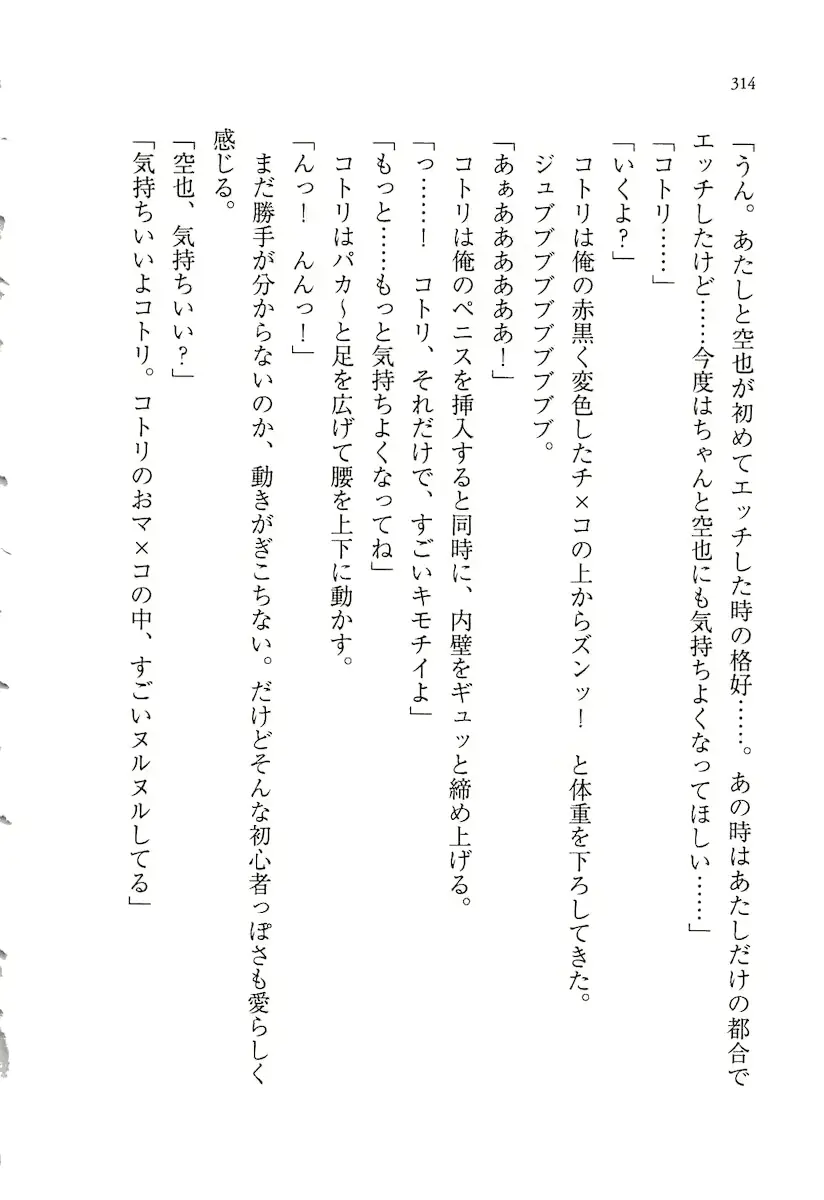 314
「うん。あたしと空也が初めてエッチした時の格好……。あの時はあたしだけの都合で
エッチしたけど……今度はちゃんと空也にも気持ちよくなってほしい……」
「コトリ……」
「いくよ？」
コトリは俺の赤黒く変色したチ×コの上からズンッ！　と体重を下ろしてきた。
ジュブブブブブブブブブ。
「あぁああああああ！」
コトリは俺のペニスを挿入すると同時に、内壁をギュッと締め上げる。
「っ……！　コトリ、それだけで、すごいキモチイよ」
「もっと……もっと気持ちよくなってね」
コトリはパカ～と足を広げて腰を上下に動かす。
「んっ！　んんっ！」
まだ勝手が分からないのか、動きがぎこちない。だけどそんな初心者っぽさも愛らしく
感じる。
「空也、気持ちいい？」
「気持ちいいよコトリ。コトリのおマ×コの中、すごいヌルヌルしてる」